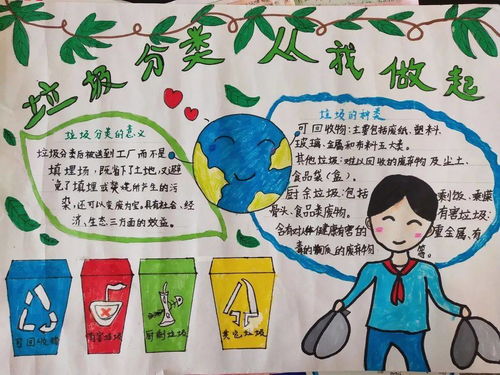 垃圾分类 从我做起
垃圾分类的意义
垃圾分类后被送到工厂而不是
填埋场，既省下土地，又避
免了填埋或焚烧所产生的污
染，还可以变废为宝。具有社会、经
济、生态三方面的效益。
垃圾的种类
可回收物：主要包括废纸、塑料、
玻璃、金属和布料五大类。
其他垃圾：难以回收的废弃物及尘土、
食品袋（盒）。
厨余垃圾：包括 剩饭、剩菜
骨头、食品类废物。 有害垃圾：
含有对人体健康有害的 重金属、有
毒的物质的废弃物 等。
可回收物
有害垃圾
厨余垃圾
其它垃圾